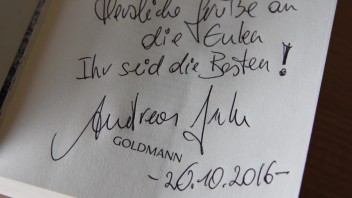 Herzliche Grüße an
die Eulen
Ihr seid die Besten!
Andreas
GOLDMANN
-20.10.2016-